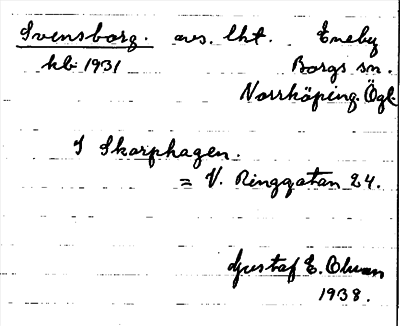 Svensborg. avs. lht. Eneby
kb. 1931 Borgs sn.
Norrköping. Ögl.
I Skarphagen.
= V. Ringgatan 24.
Gustaf E. Olsson
1938.